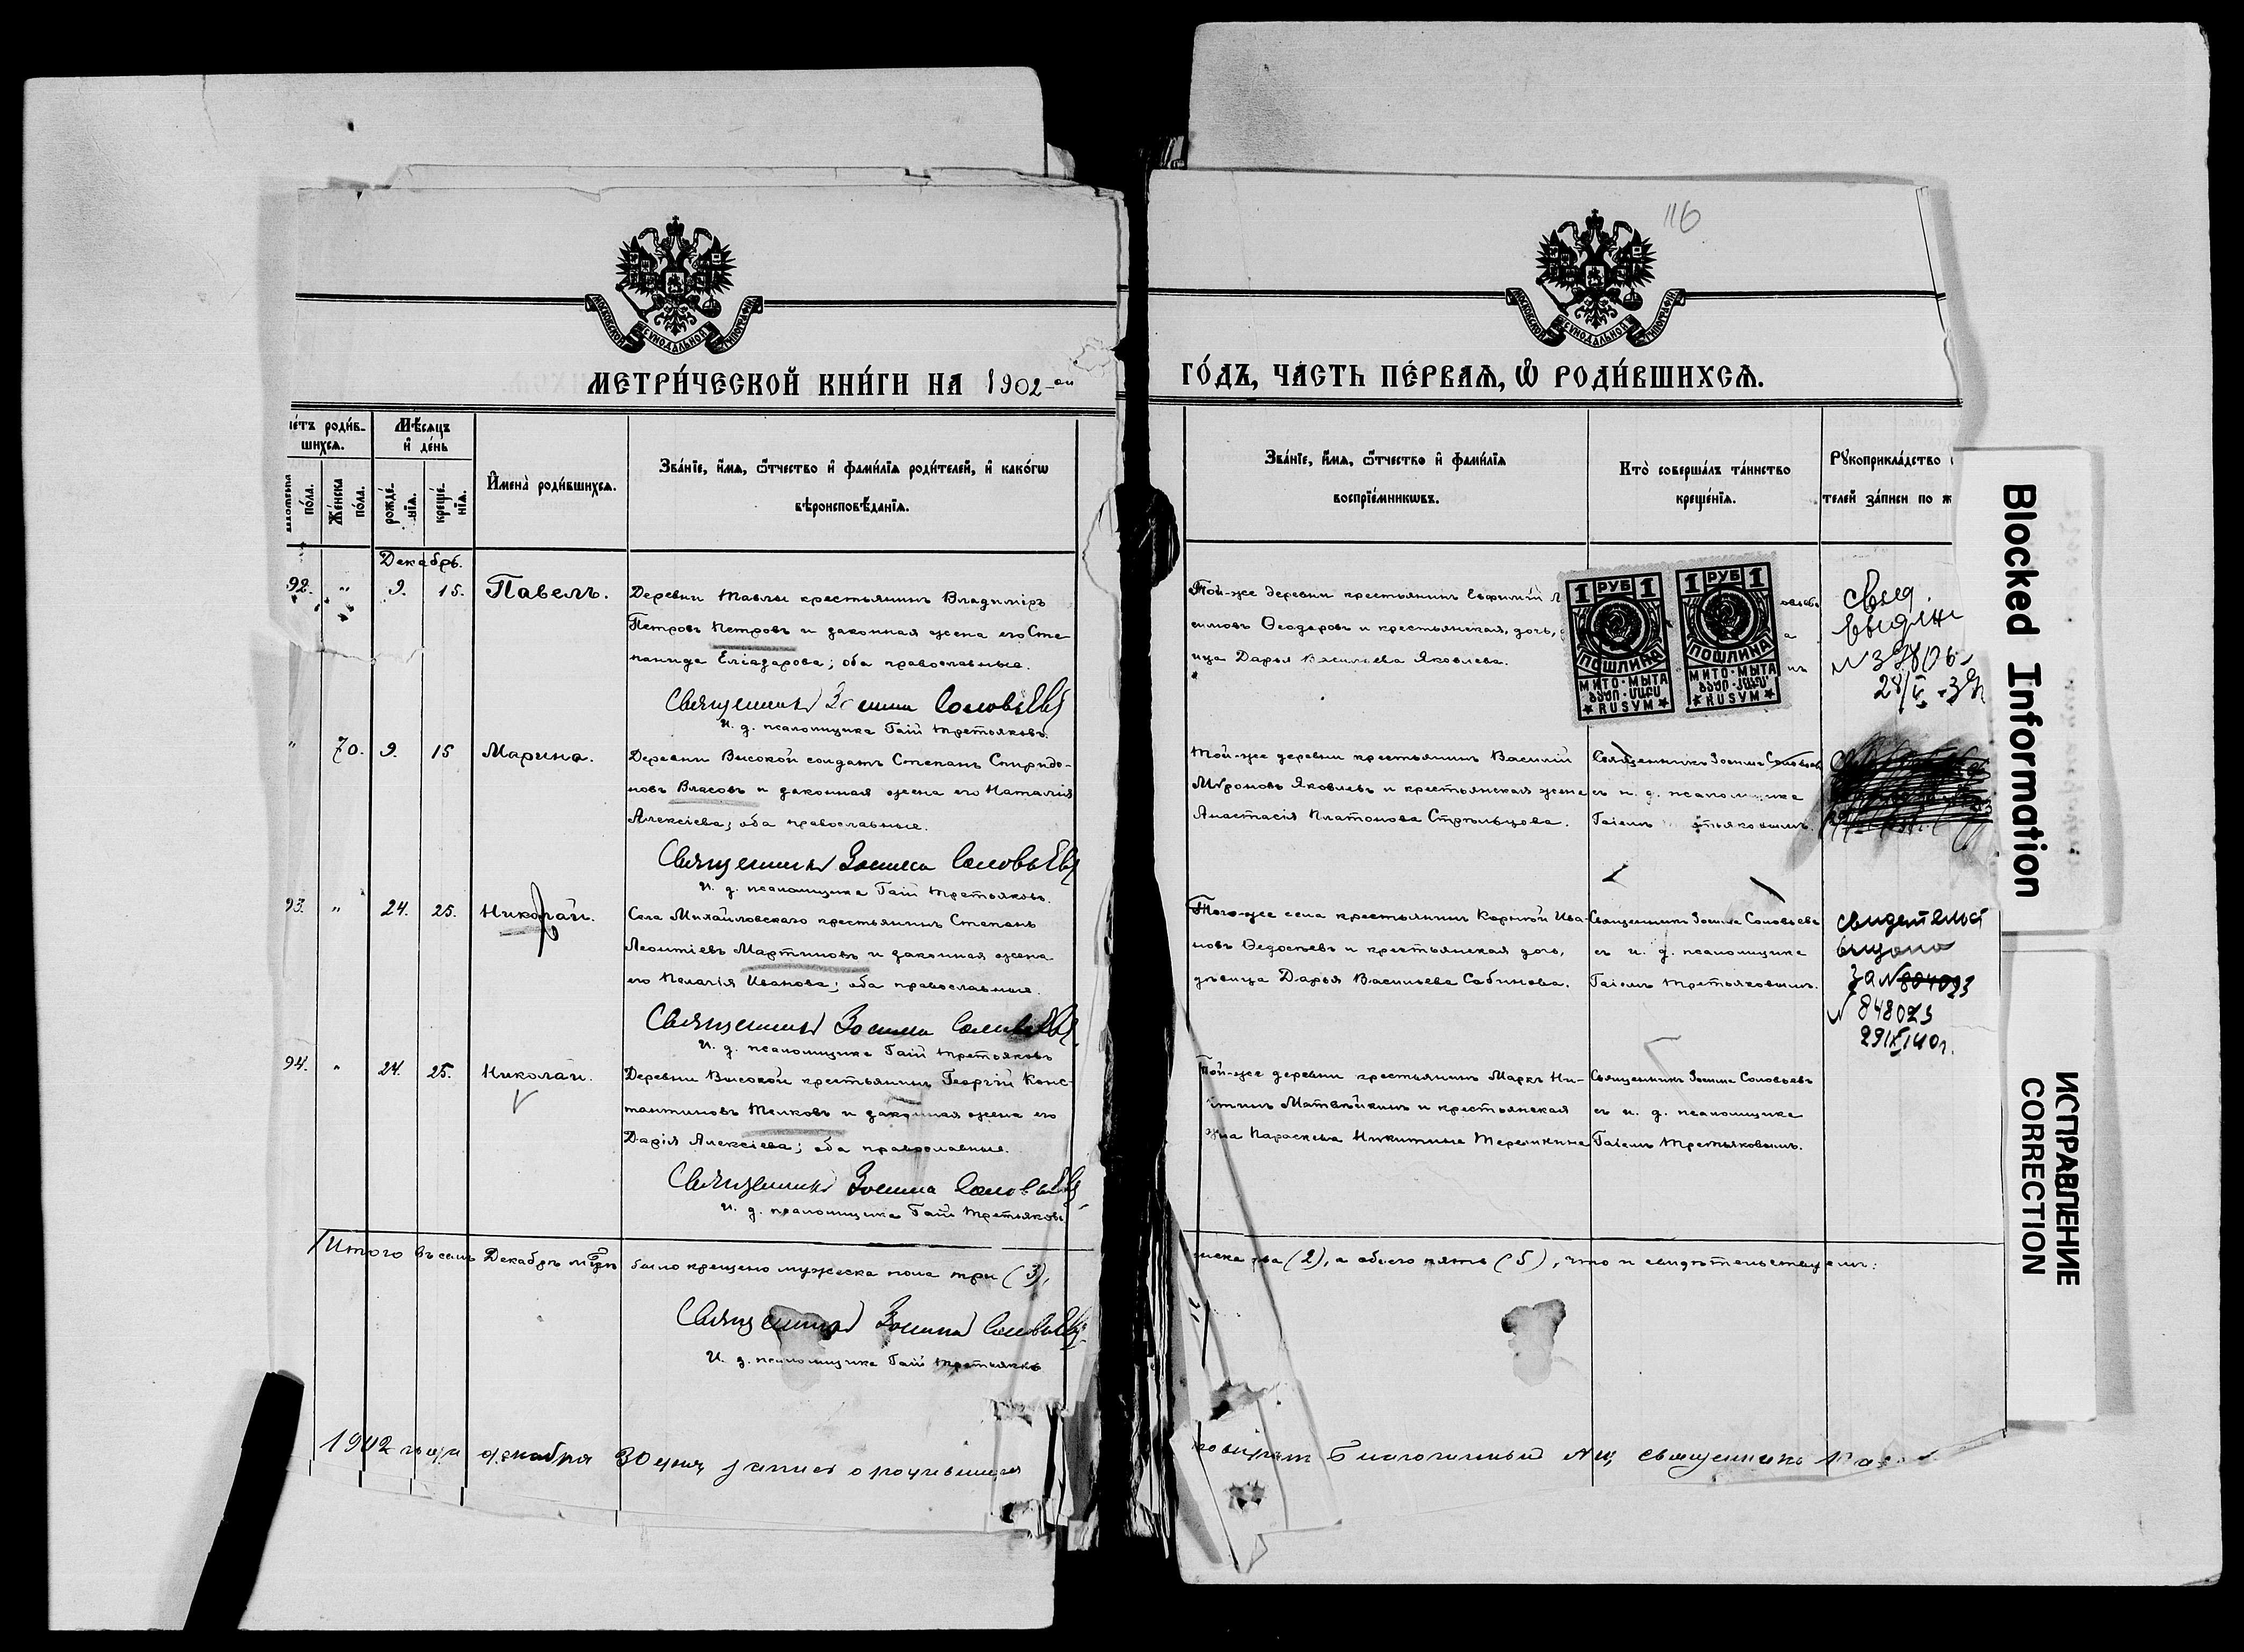 116
МОСКОВСКОЙ СѴНОДАЛЬНОЙ ТИПОГРАФІИ
МОСКОВСКОЙ СѴНОДАЛЬНОЙ ТИПОГРАФІИ
МЕТРИ́ЧЕСКОЙ КНИ́ГИ НА 1902-ой
ГО́ДЪ, ЧА́СТЬ ПЕ́РВАЯ, Ѡ РОДИ́ВШИХСЯ.
роди́в-
шихся.
Мѣ́сяцъ
и҆ де́нь
по́ла.
Же́нска
по́ла.
рожде́-
нїя.
креще́-
нїя.
И҆мена̀ роди́вшихся.
Зва́нїе, и҆́мя, ѻ҆́тчество и҆ фами́лїя роди́телей, и҆ како́гѡ
вѣроисповѣ́данїя.
Зва́нїе, и҆́мя, ѻ҆́тчество и҆ фами́лїя
воспрїе́мникѡвъ.
Кто̀ соверша́лъ та́инство
креще́нїя.
Рꙋкоприкла́дство
телей за́писи по ж
Декабрь.
92. " 9. 15. Павелъ.
Деревни Тавлы крестьянинъ Владиміръ
Петровъ Петровъ и законная жена его Сте
панида Еліазарова; оба православные.
Священникъ Зосима Соловьевъ
И. д. псаломщика Гаій Третьяковъ.
Той-же деревни крестьянинъ Евфимій
симовъ Ѳеодоровъ и крестьянская, дочь,
ица Дарья Васильева Яковлева.
1 РУБ 1
ПОШЛИНА
МИТО · МЫТА
RUSYM
1 РУБ 1
ПОШЛИНА
МИТО · МЫТА
RUSYM
свид.
выдан
" 70. 9. 15 Марина.
Деревни Высокой солдатъ Степанъ Спиридо-
новъ Власовъ и законная жена его Наталія
Алексіева; оба православные.
Священникъ Зосима Соловьевъ
И. д. псаломщика Гаій Третьяковъ.
Той-же деревни крестьянинъ Василій
Мѵроновъ Яковлевъ и крестьянская жена
Анастасія Платонова Стрѣльцова.
Священникъ Зосима Соловьевъ
съ и. д. псаломщика
Гаіемъ Третьяковымъ.
93. " 24. 25. Николай.
Села Михайловскаго крестьянинъ Степанъ
Леонтіевъ Мартиновъ и законная жена
его Пелагія Иванова; оба православные.
Священникъ Зосима Соловьевъ
И. д. псаломщика Гаій Третьяковъ
Того-же села крестьянинъ Корнилій Ива-
новъ Ѳедосѣевъ и крестьянская дочь,
дѣвица Дарья Васильева Сабинова.
Священникъ Зосима Соловьевъ
съ и. д. псаломщика
Гаіемъ Третьяковымъ.
свидетельст
выдано
за № 804023
№ 848023
29/X 140г.
94. " 24. 25. Николай.
Деревни Высокой крестьянинъ Георгій Конс-
тантиновъ Телковъ и законная жена его
Дарія Алексіева; оба православные.
Священникъ Зосима Соловьевъ
И. д. псаломщика Гаій Третьяковъ
Той-же деревни крестьянинъ Маркъ Ни-
Матвѣйкинъ и крестьянская
жена Параскева Никитина Терешкина
Священникъ Зосима Соловьевъ
съ и. д. псаломщика
Гаіемъ Третьяковымъ.
Итого въ семъ Декабрѣ м-цѣ было крещено мужеска пола три (3),
ска два (2), а обоего пять (5), что и свидѣтельствуемъ:
Священникъ Зосима Соловьевъ
И. д. псаломщика Гаій Третьяковъ
1902 года декабря 30 дня, запись о родившихся
Благочинный священникъ
Blocked Information
ИСПРАВЛЕНИЕ
CORRECTION